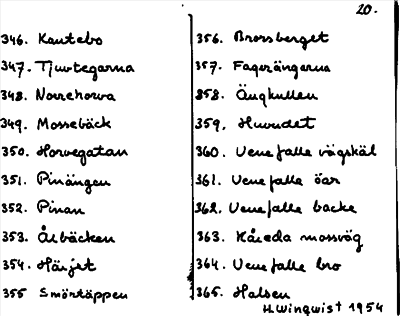 20.
346. Kautebo
347. Tjuvtegarna
348. Norrehorva
349. Mossebäck
350. Horvegatan
351. Pinängen
352. Pinan
353. Ålbäcken
354. Härjet
355 Smörtäppen
356. Brossberget
357. Fagerängerna
358. Ängkullen
359. Huvudet
360. Venefalle vägskäl
361. Venefalle öar
362. Venefalle backe
363. Kåreda mossväg
364. Venefalle bro
365. Halsen
H. Winqwist 1954